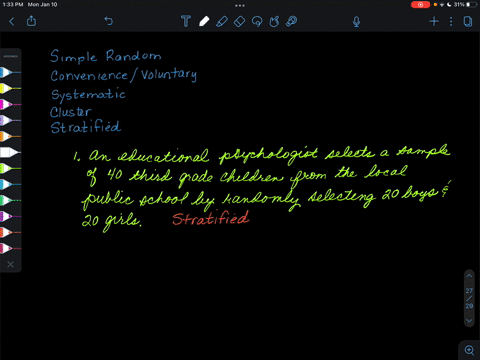 1:33 PM Mon Jan 10
31%
Simple Random
Convenience/Voluntary
Systematic
Cluster
Stratified
1. An educational psychologist selects a sample
of 40 third grade children from the local
public school by randomly selecting 20 boys &
20 girls. Stratified
27
/
29